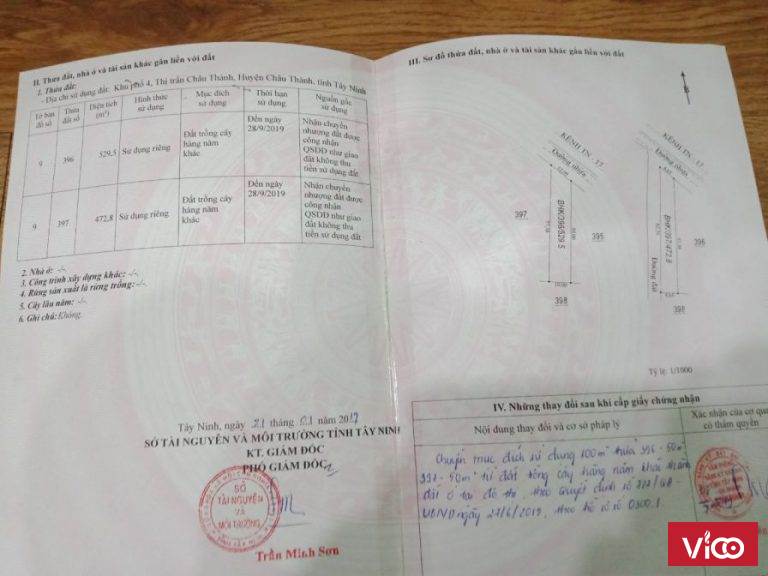 II. Thửa đất, nhà ở và tài sản khác gắn liền với đất
1. Thửa đất:
- Địa chỉ sử dụng đất: Khu phố 4, Thị trấn Châu Thành, Huyện Châu Thành, tỉnh Tây Ninh
Tờ bản đồ số
Thửa đất số
Diện tích (m²)
Hình thức sử dụng
Mục đích sử dụng
Thời hạn sử dụng
Nguồn gốc sử dụng
9
396
529,5
Sử dụng riêng
Đất trồng cây
hàng năm
khác
Đến ngày
28/9/2019
Nhận chuyển
nhượng đất được
công nhận
QSDĐ như giao
đất không thu
tiền sử dụng đất
9
397
472,8
Sử dụng riêng
Đất trồng cây
hàng năm
khác
Đến ngày
28/9/2019
Nhận chuyển
nhượng đất được
công nhận
QSDĐ như giao
đất không thu
tiền sử dụng đất
2. Nhà ở: -/-
3. Công trình xây dựng khác: -/-
4. Rừng sản xuất là rừng trồng: -/-
5. Cây lâu năm: -/-
6. Ghi chú: Không.
Tây Ninh, ngày 21 tháng 01 năm 2017
SỞ TÀI NGUYÊN VÀ MÔI TRƯỜNG TỈNH TÂY NINH
KT. GIÁM ĐỐC
PHÓ GIÁM ĐỐC
SỞ
TÀI NGUYÊN
VÀ
MÔI TRƯỜNG
Trần Minh Sơn
III. Sơ đồ thửa đất, nhà ở và tài sản khác gắn liền với đất
KÊNH TN - 17
Đường nhựa
397
BHK/396/529.5
395
398
KÊNH TN - 17
Đường nhựa
Đường đất
BHK/397/472.8
396
398
Tỷ lệ: 1/1000
IV. Những thay đổi sau khi cấp giấy chứng nhận
Nội dung thay đổi và cơ sở pháp lý
Xác nhận của cơ qu
có thẩm quyền
Chuyển mục đích sử dụng 100m² thửa 396-50m²
397-50m² từ đất trồng cây hàng năm khác thành
đất ở tại đô thị, theo Quyết định số
UBND ngày 27/6/2019, theo hồ sơ số
Vico